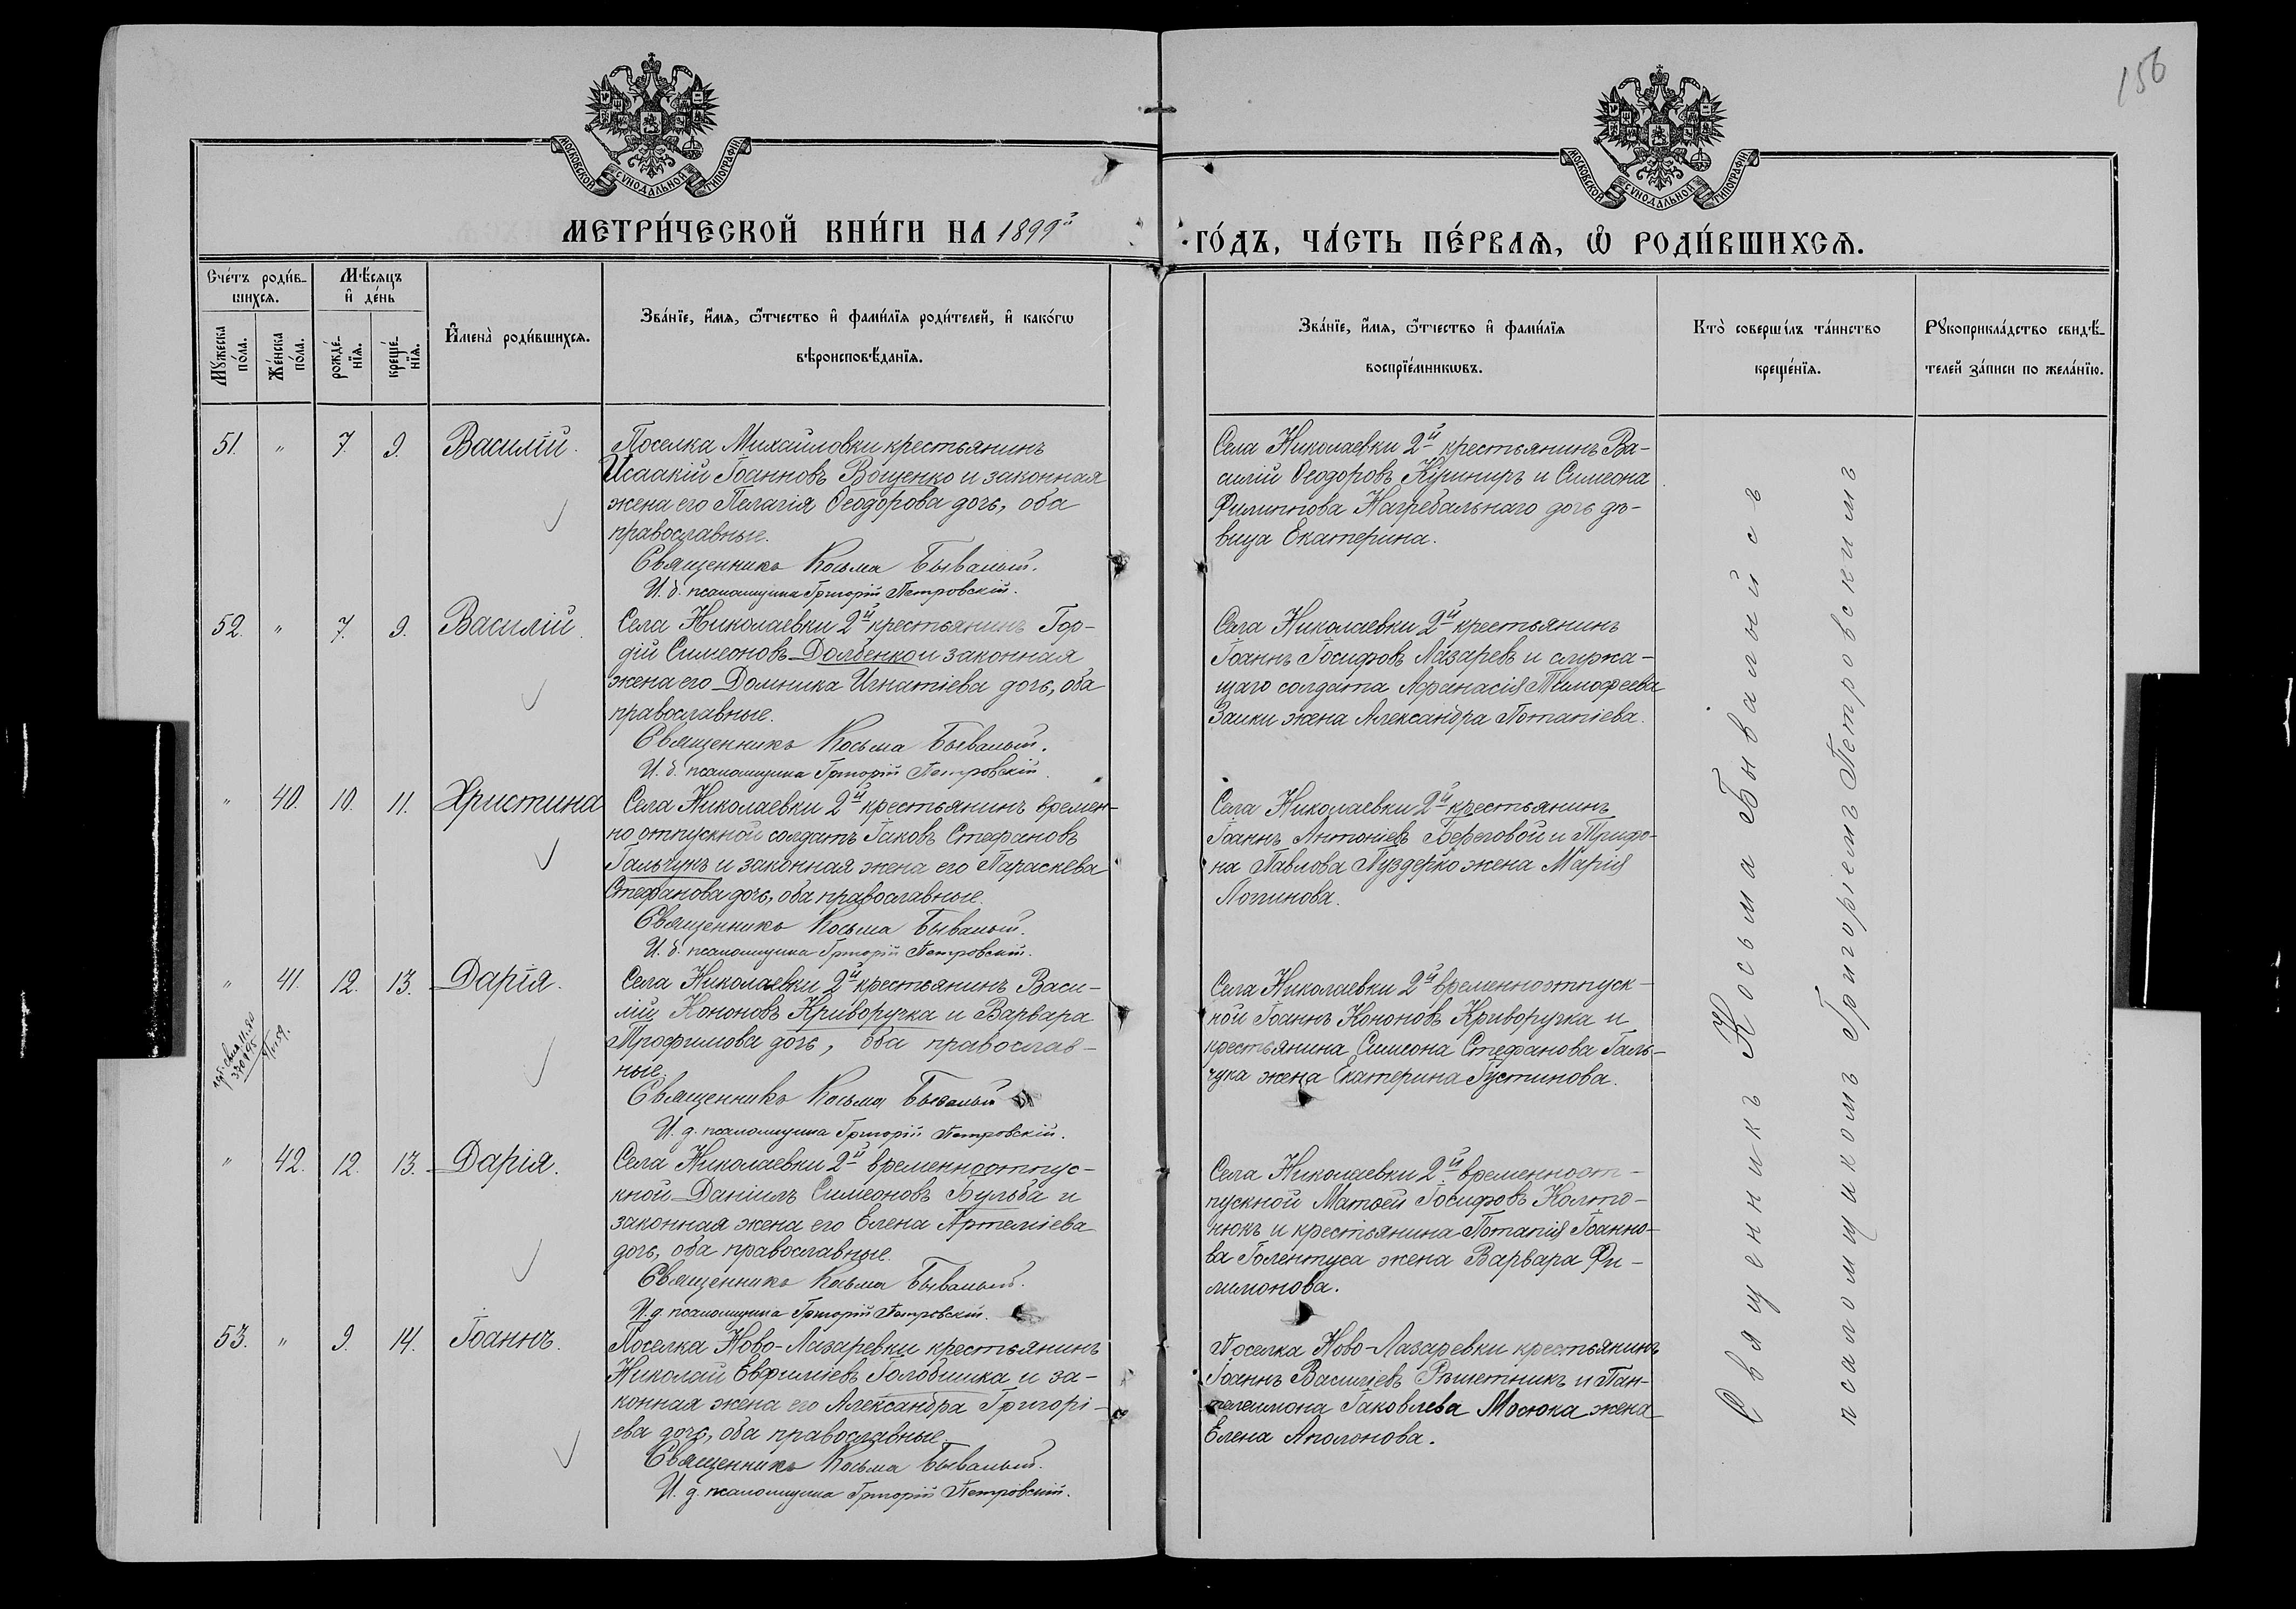 156
МОСКОВСКОЙ СѴНОДАЛЬНОЙ ТИПОГРАФІИ
МОСКОВСКОЙ СѴНОДАЛЬНОЙ ТИПОГРАФІИ
МЕТРИ́ЧЕСКОЙ КНИ́ГИ НА 1899й
ГО́ДЪ, ЧА́СТЬ ПЕ́РВАѦ, Ѽ РОДИ́ВШИХСѦ.
Сче́тъ роди́в-
шихсѧ.
Мѣ́сѧцъ
и҆ де́нь
Мꙋ́жеска
по́ла.
Же́нска
по́ла.
рожде́-
нїѧ.
креще́-
нїѧ.
И҆мена̀ роди́вшихсѧ.
Зва́нїе, и҆́мѧ, ѻ҆́тчество и҆ фами́лїѧ роди́телей, и҆ како́гѡ
вѣроисповѣ́данїѧ.
Зва́нїе, и҆́мѧ, ѻ҆́тчество и҆ фами́лїѧ
воспрїе́мникѡвъ.
Кто̀ соверши́лъ та́инство
креще́нїѧ.
Рꙋкоприкла́дство свидѣ́-
телей за́писи по жела́нїю.
51. " 7. 9. Василій.
Поселка Михайловки крестьянинъ
Исаакій Іоанновъ Вощенко и законная
жена его Пелагія Ѳеодорова дочь, оба
православные.
Священникъ Косьма Бывалый.
И. д. псаломщика Григорій Петровскій.
Села Николаевки 2й крестьянинъ Ва-
силій Ѳеодоровъ Кушниръ и Симеона
Филиппова Нагребельнаго дочь дѣ-
вица Екатерина.
52. " 7. 9. Василій.
Села Николаевки 2й крестьянинъ Гор-
дій Симеоновъ Долбенко и законная
жена его Домника Игнатіева дочь, оба
православные.
Священникъ Косьма Бывалый.
И. д. псаломщика Григорій Петровскій.
Села Николаевки 2й крестьянинъ
Іоаннъ Іосифовъ Лазаревъ и служа-
щаго солдата Аѳанасія Тимоѳеева
Заики жена Александра Потапіева.
" 40. 10. 11. Христина
Села Николаевки 2й крестьянинъ времен-
но отпускной солдатъ Іаковъ Стефановъ
Гальчукъ и законная жена его Параскева
Стефанова дочь, оба православные.
Священникъ Косьма Бывалый.
И. д. псаломщика Григорій Петровскій.
Села Николаевки 2й крестьянинъ
Іоаннъ Антоніевъ Береговой и Трифо-
на Павлова Пуздерко жена Марія
Логинова.
" 41. 12. 13. Дарія.
Села Николаевки 2й крестьянинъ Васи-
лій Кононовъ Криворучка и Варвара
Трофимова дочь, оба православ-
ные.
Священникъ Косьма Бывалый
И. д. псаломщика Григорій Петровскій.
Села Николаевки 2й временноотпуск-
ной Іоаннъ Кононовъ Криворучка и
крестьянина Симеона Стефанова Галь-
чука жена Екатерина Густинова.
" 42. 12. 13. Дарія.
Села Николаевки 2й временноотпус-
кной Даніилъ Симеоновъ Бульба и
законная жена его Елена Артеміева
дочь, оба православные.
Священникъ Косьма Бывалый.
И. д. псаломщика Григорій Петровскій.
Села Николаевки 2й временноот-
пускной Матѳей Іосифовъ Колто-
нюкъ и крестьянина Потапія Іоанно-
ва Голентуса жена Варвара Фи-
лимонова.
53. " 9. 14. Іоаннъ.
Поселка Ново-Лазаревки крестьянинъ
Николай Евфиміевъ Голобишка и за-
конная жена его Александра Григорі-
ева дочь, оба православные.
Священникъ Косьма Бывалый.
И. д. псаломщика Григорій Петровскій.
Поселка Ново-Лазаревки крестьянинъ
Іоаннъ Василіевъ Рѣшетникъ и Пан-
телеимона Іаковлева Мосюка жена
Елена Аполонова.
Священникъ Косьма Бывалый съ
псаломщикомъ Григоріемъ Петровскимъ